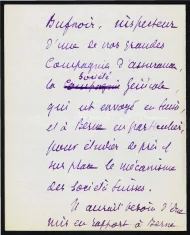 Bufnoir, inspecteur
d'une de nos grandes
Compagnies d'assurances,
la Société Générale,
qui est envoyé en Suisse,
et à Berne en particulier,
pour étudier de près et
sur place le mécanisme
des Sociétés suisses.
Il aurait besoin d'être
mis en rapport à Berne